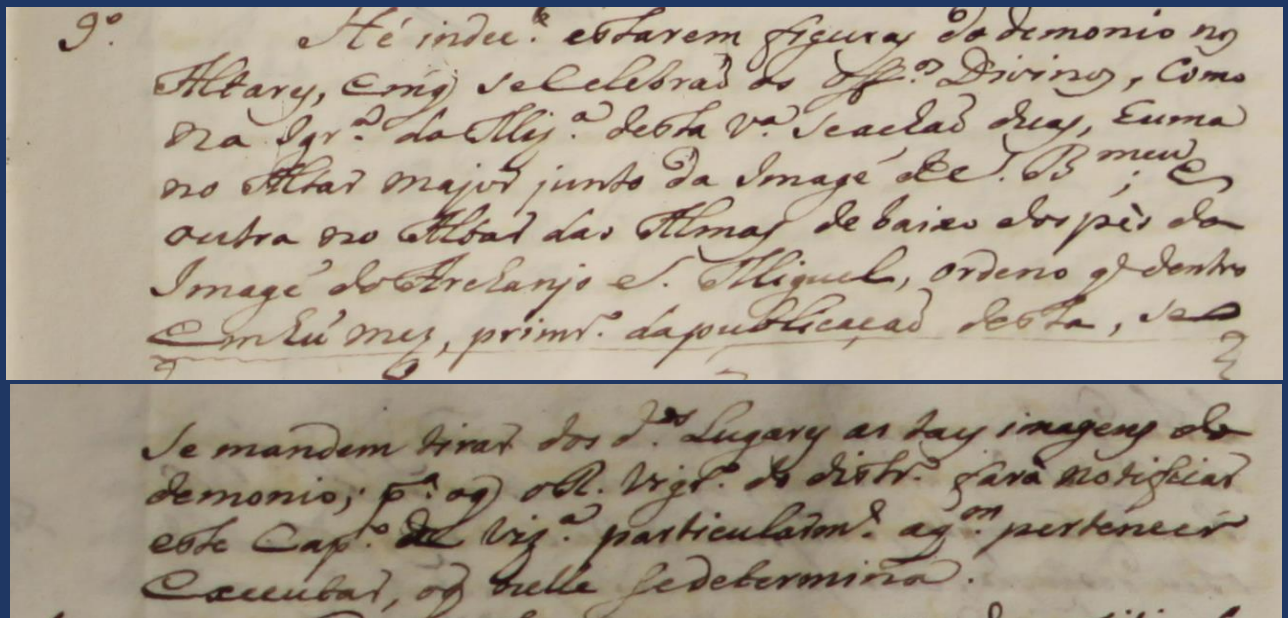 9º Hé indec.e estarem figuras do demonio nos
Altares, em q̃ se Celebraõ os Off.os Divinos, Como
na Igr.a da Mis.a desta V.a Se achaõ duas, huma
no Altar major junto da Image de S. B.meu; e
outra no Altar das Almas de baixo dos pès da
Image do Archanjo S. Miguel, ordeno q̃ dentro
em hũ mez, primr.o da publicaçaõ desta, se
Se mandem tirar dos d.os Lugares as taes imagens do
demonio; p.a o q̃ o R. Vigr.o do distr.o farà notificar
este Cap.o de Viz.a particularm.e a q.m pertencer
Executar, o q̃ nelle Se determina.